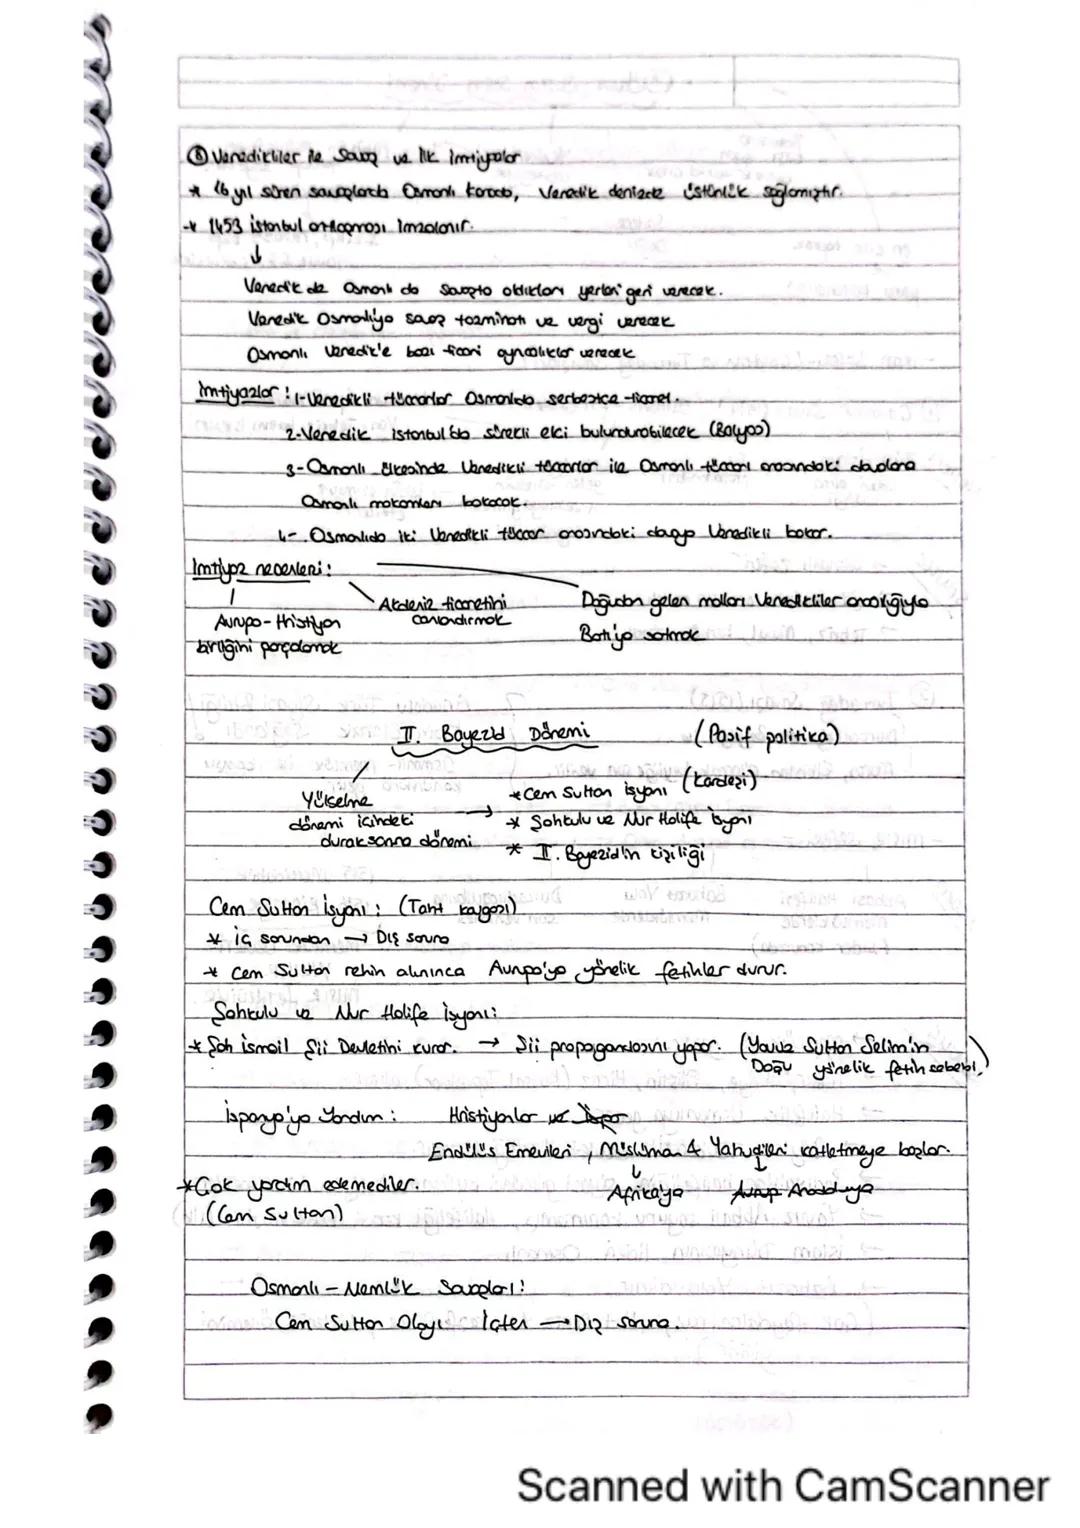 ⑧ Venedikliler ile Savaş ve İlk İmtiyazlar
* 16 yıl süren savaşlarda Osmanlı karada, Venedik denizde üstünlük sağlamıştır.
* 1453 İstanbul antlaşması imzalanır.
↓
Venedik de Osmanlı da savaşta aldıkları yerleri geri verecek.
Venedik Osmanlıya savaş tazminatı ve vergi verecek
Osmanlı Venedik'e bazı ticari ayrıcalıklar verecek
İmtiyazlar : 1-Venedikli tüccarlar Osmanlıda serbestçe ticaret.
2-Venedik İstanbul'da sürekli elçi bulundurabilecek (Balyos)
3-Osmanlı ülkesinde Venedikli tüccarlar ile Osmanlı tüccarı arasındaki davalara
Osmanlı makamları bakacak.
4- Osmanlıda iki Venedikli tüccar arasındaki davaya Venedikli bakar.
İmtiyaz nedenleri :
Avrupa-Hristiyan birliğini parçalamak
Akdeniz ticaretini canlandırmak
Doğudan gelen malları Venedikliler aracılığıyla
Batı'ya satmak
II. Bayezid Dönemi (Pasif politika)
Yükselme
dönemi içindeki
duraksama dönemi
→ * Cem Sultan isyanı (kardeşi)
* Şahkulu ve Nur Halife isyanı
* II. Bayezid'in kişiliği
Cem Sultan İsyanı : (Taht kavgası)
* iç sorundan → Dış soruna
* Cem Sultan rehin alınınca Avrupa'ya yönelik fetihler durur.
Şahkulu ve Nur Halife İsyanı:
* Şah İsmail Şii Devletini kurar. → Şii propagandasını yapar. (Yavuz Sultan Selim'in
Doğu yönelik fetih sebebi.)
İspanya'ya Yardım : Hristiyanlar
Endülüs Emevileri, Müslüman & Yahudileri katletmeye başlar.
↓ ↓
Afrika'ya Anadoluya
* Çok yardım edemediler.
(Cem Sultan)
Osmanlı - Memlük Savaşları:
Cem Sultan Olayı İçten → Dış soruna.
Scanned with CamScanner